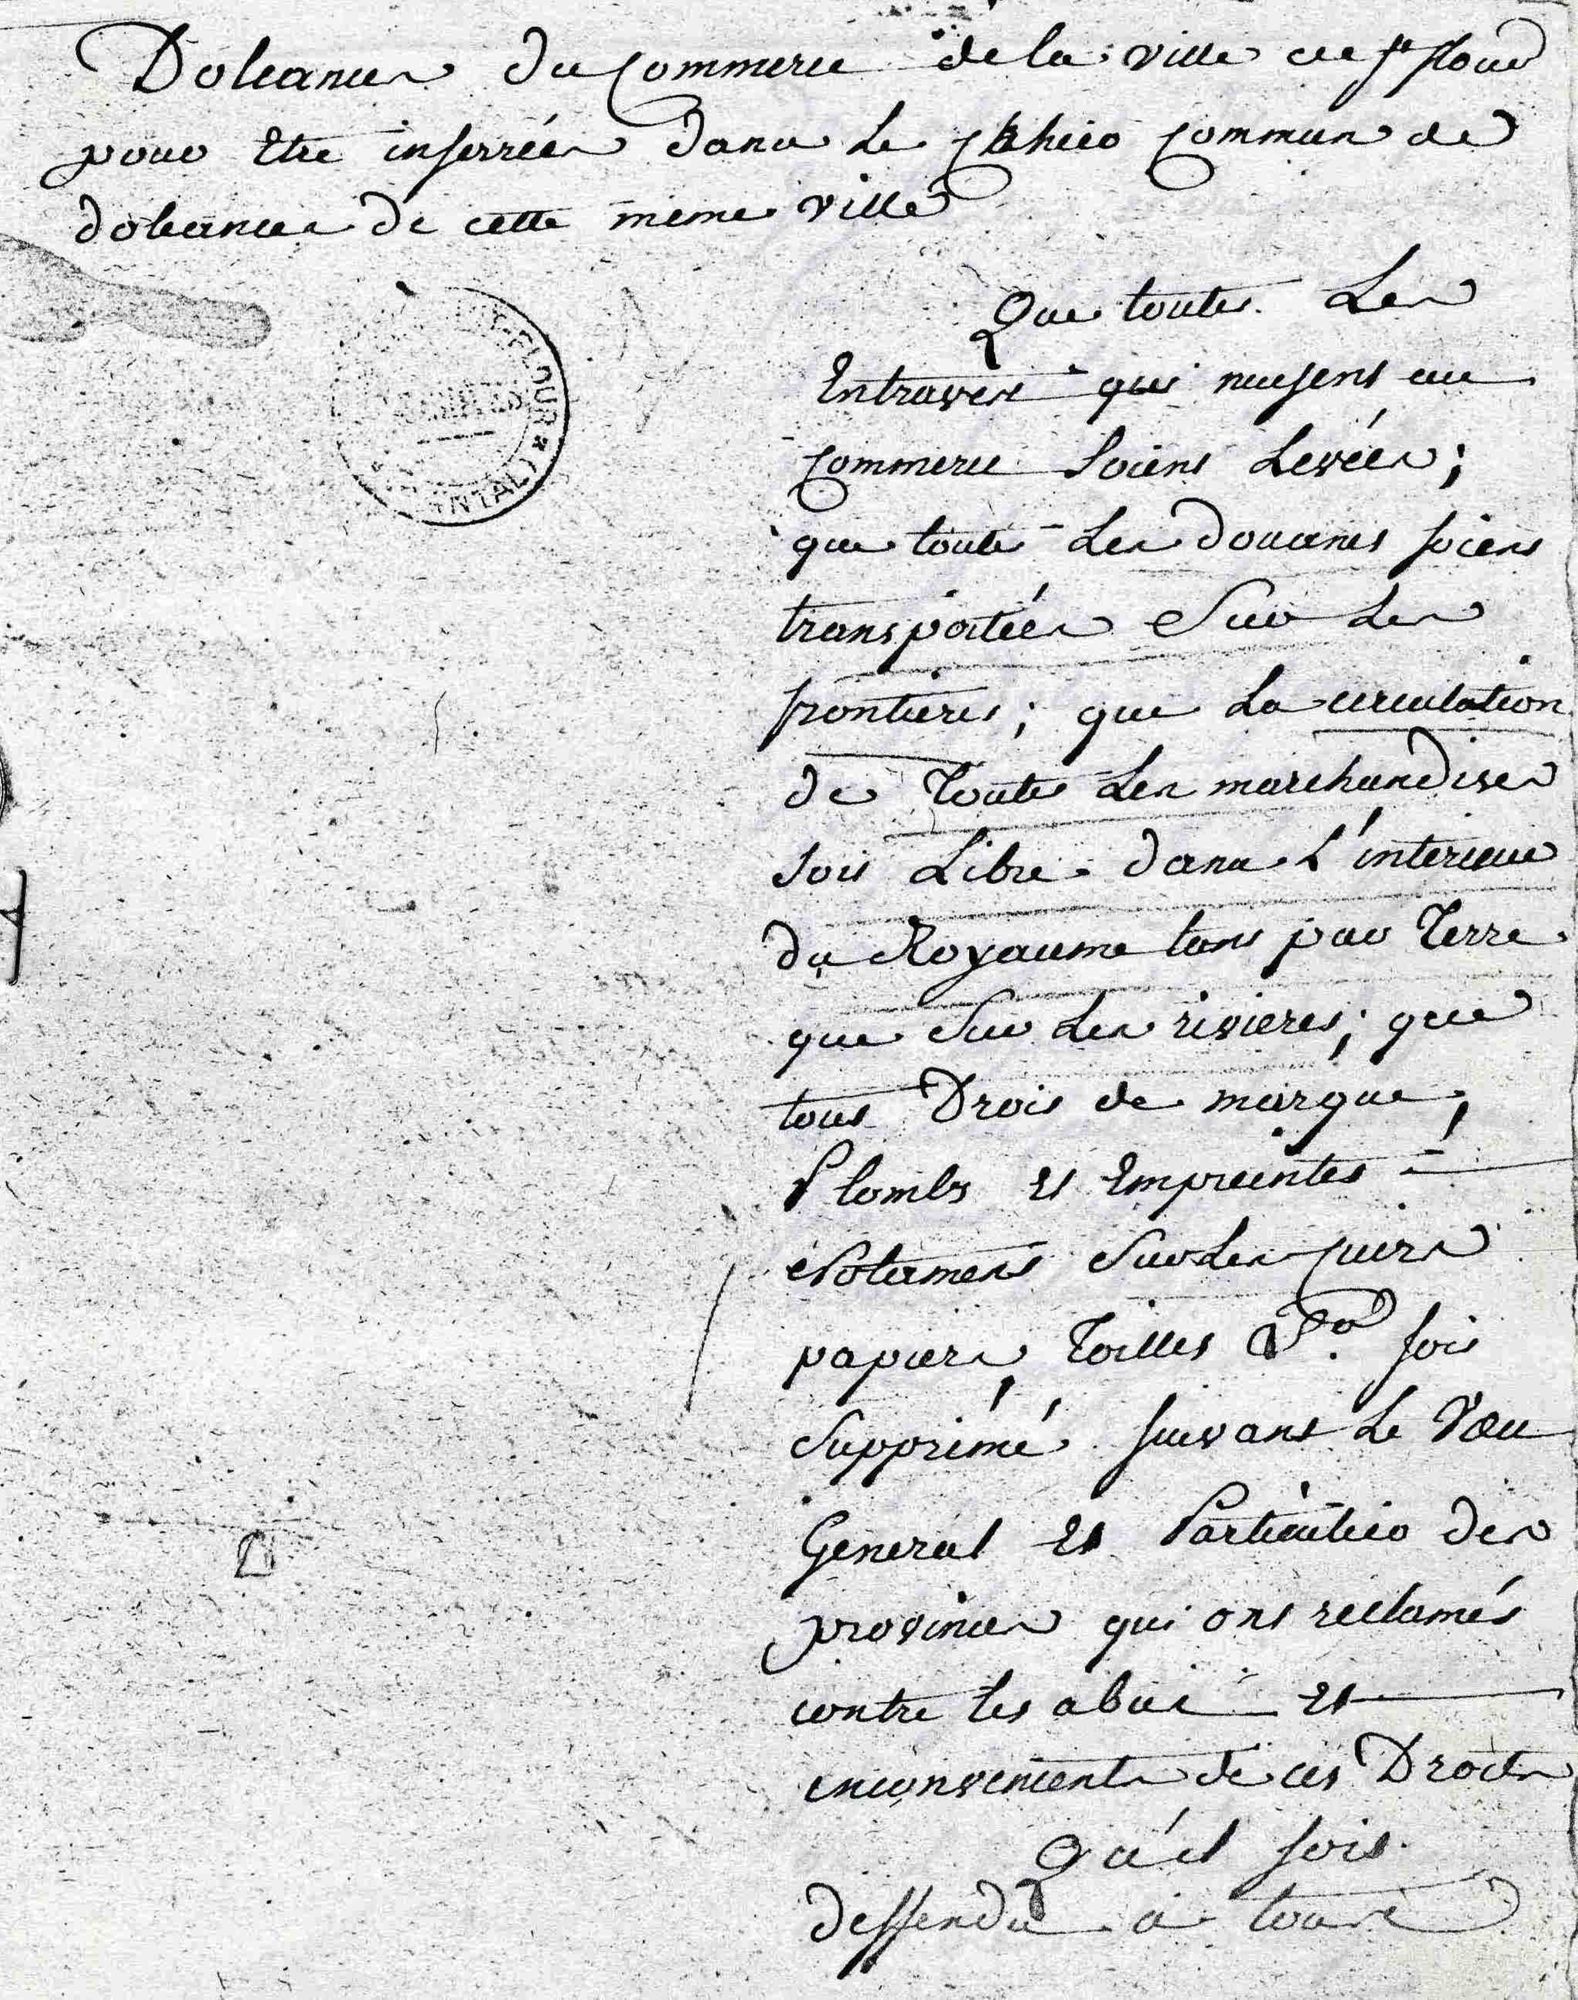 Doleances du Commerce de la ville de st flour
pour Etre inserrées dans Le Cahier Commun de
doleances de cette meme ville
Que toutes Les
Entraves qui nuisent au
Commerce Soient Levées;
que toutes Les douanes soient
transportées Sur Les
frontieres; que La circulation
de Toutes Les marchandises
soit Libre dans L'interieur
du Royaume tant par Terre
que Sur Les rivieres; que
tous Droits de marque,
Plombs et Empreintes
Notament Sur Les Cuirs
papiers, Toilles &ca. soit
Supprimé suivant Le Vœu
General et Particulier des
provinces qui ont reclamés
contre les abus et
inconvenients de ces Droits
Qu'il soit
deffendu a tous
ST-FLOUR * (CANTAL)